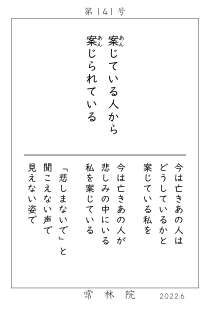 第141号
案じている人から
案じられている
今は亡きあの人は
どうしているかと
案じている私を
今は亡きあの人が
悲しみの中にいる
私を案じている
「悲しまないで」と
聞こえない声で
見えない姿で
常林院
20226